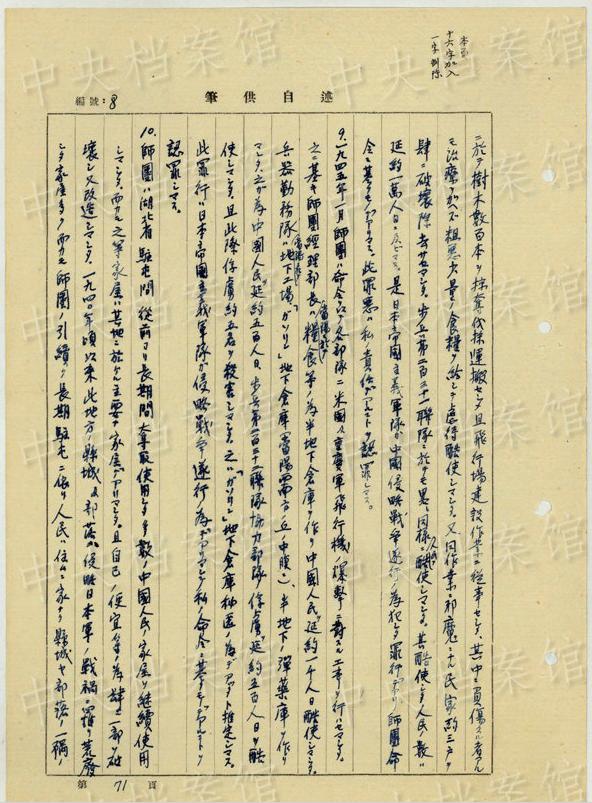 本頁
十六字加入
一字削除
中央档案馆
編號:8
筆供自述
ニ於テ樹木数百本ヲ採奪伐採運搬セシメ且飛行場建設作業ニ從事セシメ、其中ニ負傷スル者アルモ治療ヲ加ヘズ粗悪少量ノ食糧ヲ給シテ虐待酷使シマシタ。又同作業ニ邪魔ニナル民家約三戸ヲ
肆ニ破壊除去サセマシタ。歩兵第二百三十一聯隊ニ於テモ同様ニ酷使シマシタ。其酷使シタ人民ノ数ハ
延約一萬人日ニ及ビマス。是日本帝国主義軍隊ガ中國侵略戦争遂行ノ為犯シタ罪行デアリ師團命
令ニ基クモノデアリマス。此罪悪ハ私ノ責任デアルコトヲ認罪シマス。
9.一九四五年一月師團ハ命令ヲ以テ各部隊ニ米国ノ重爆軍飛行機ノ爆撃ニ對スル工事ヲ行ハセマシタ。
之ニ基キ師團経理部長ハ當陽附近ニ糧食等ノ為半地下倉庫ヲ作リ中國人民ヲ延約一千人日酷使シマシタ。
兵器勤務隊ハ當陽ニ地下工場、「ガソリン」地下倉庫(當陽西南方ノ丘ノ中腹)、半地下ノ彈薬庫ヲ作リ
マシタ。之ガ為中國人民ヲ延約五百人日、歩兵第二百三十二聯隊協力部隊ハ俘虜ヲ延約五百人日ヲ酷
使シマシタ。且此際俘虜約五名ヲ殺害シマシタ。之ハ「ガソリン」地下倉庫秘匿ノ為デアツタト推定シマス。
此罪行ハ日本帝国主義軍隊ガ侵略戦争遂行ノ為デアリマシテ私ノ命令ニ基クモノデアルコトヲ
認罪シマス。
10.師團ハ湖北省ニ駐屯間従前ヨリ長期間奪取使用シタ多数ノ中國人民ノ家屋ヲ継続使用
シマシタ。而カモ之等家屋ハ其地ニ於ケル主要ナ家屋デアリマシタ。且自己ノ便宜等ノ為肆ニ一部ヲ破
壊シ又改造シマシタ。一九四〇年頃以来此地方ノ縣城及部落ハ侵略日本軍ノ戦禍ニ罹リ荒廢
シタ家屋多ク而カモ師團ノ引續ク長期駐屯ニ依リ人民ハ住ムニ家ナク縣城ヤ部落ノ一隅ノ
第71頁